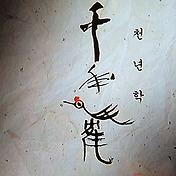 천년학
千年鶴